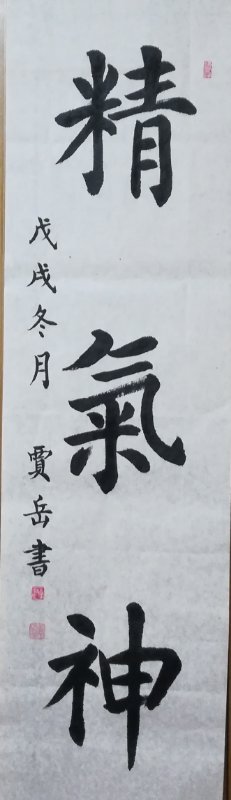 精氣神
戊戌冬月 賈岳書